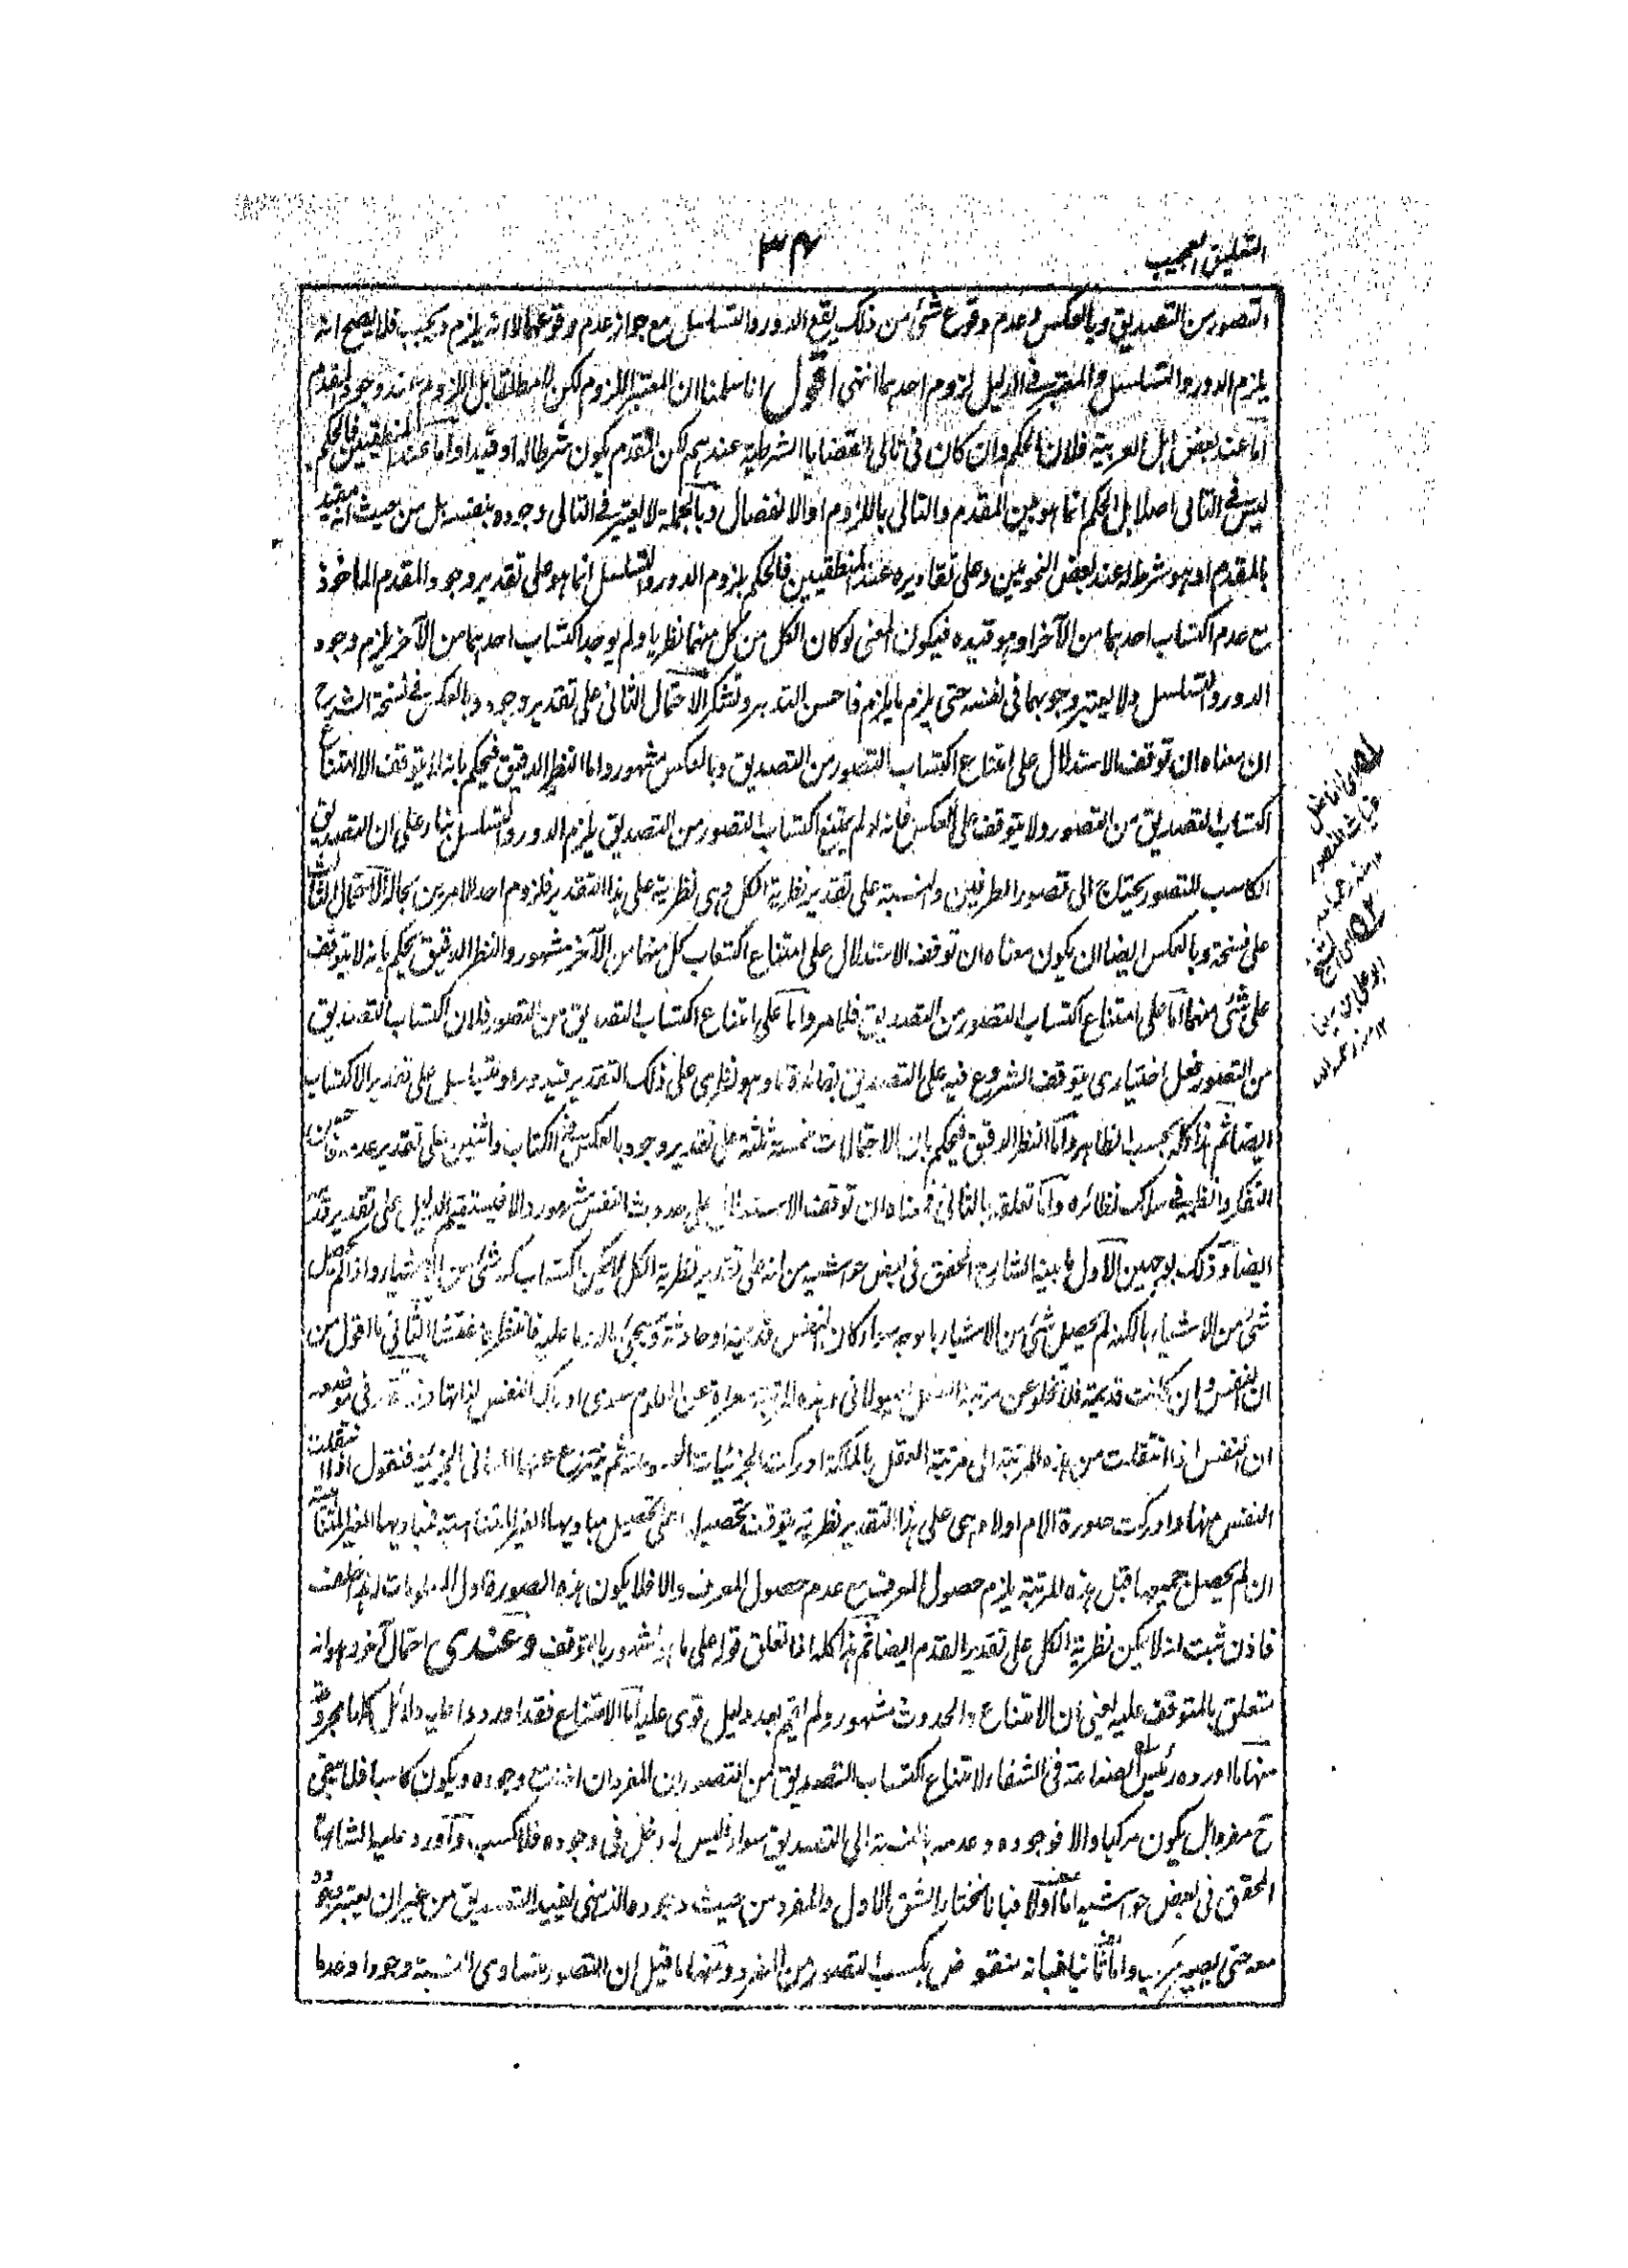 التعليق العجيب
٣٤
التصور من التصديق وبالعكس وعدم وقوع شئ من ذلك يقع الدور والتسلسل مع جواز عدم وقوعهما لا انه يلزم ويجب فلا يصح انه
يلزم الدور والتسلسل والمعتبر في الدليل لزوم احدهما انتهى اقول انا سلمنا ان المعتبر اللزوم لكن لا مطلقا بل اللزوم عند وجود المقدم
اما عند بعض اهل العربية فلان الحكم وان كان في تالي القضايا الشرطية عندهم لكن المقدم يكون شرطا له او قيدا واما عند المنطقيين فالحكم
ليس في التالي اصلا بل الحكم انما هو بين المقدم والتالي باللزوم او الانفصال وبالجملة لا يعتبر في التالي وجوده بنفسه بل من حيث انه مقيد
بالمقدم او هو شرط له عند بعض النحويين وعلى تقاديره عند المنطقيين فالحكم بلزوم الدور والتسلسل انما هو على تقدير وجود المقدم الماخوذ
مع عدم اكتساب احدهما من الآخر او هو قيده فيكون المعنى لو كان الكل من كل منهما نظريا ولم يوجد اكتساب احدهما من الآخر يلزم وجود
الدور والتسلسل ولا يعتبر وجوبهما في نفسه حتى يلزم ما يلزم فاحسن التدبر وتشكر الاحتمال الثاني على تقدير وجود وبالعكس في نسخة الشرح
ان معناه ان توقف الاستدلال على امتناع اكتساب التصور من التصديق وبالعكس مشهور واما النظر الدقيق فيحكم بانه لا يتوقف الا لامتناع
اكتساب التصديق من التصور ولا يتوقف على العكس فانه لو لم يمتنع اكتساب التصور من التصديق يلزم الدور والتسلسل بناء على ان التصديق
الكاسب للتصور يحتاج الى تصور الطرفين والنسبة على تقدير نظرية الكل وهي نظرية على هذا التقدير فلزوم احد الامرين بحاله الاحتمال الثالث
على نسخة وبالعكس ايضا ان يكون معناه ان توقف الاستدلال على امتناع اكتساب كل منهما من الآخر مشهور والنظر الدقيق يحكم بانه لا يتوقف
على شئ منهما اما على امتناع اكتساب التصور من التصديق فلما مر واما على امتناع اكتساب التصديق من التصور فلان اكتساب التصديق
من التصور فعل اختياري يتوقف الشروع فيه على التصديق بفائدة ما وهو نظري على ذلك التقدير فيدور او يتسلسل على تقدير الاكتساب
ايضا ثم هذا كله بحسب الظاهر واما النظر الدقيق فيحكم بان الاحتمالات خمسة ثلثة على تقدير وجود بالعكس في الكتاب واثنين على تقدير عدمه
النظار وانظمه في سلك نظائره واما تعلقه بالثاني فمعناه ان توقف الاستدلال على حدوث النفس مشهور والا فيستقيم الدليل على تقدير قدمه
ايضا وذلك بوجهين الاول ما بينه الشارح المحقق في بعض حواشيه من انه على تقدير نظرية الكل لا يمكن اكتساب كنه شئ من الاشياء واذا لم يحصل
شئ من الاشياء بالكنه لم يحصل شئ من الاشياء بالوجه سواء كان النفس قديمة او حادثة وسيجئ ما له وما عليه فانتظره مفتشا الثاني ما اقول من
ان النفس وان كانت قديمة فلا تخلو عن مرتبة العقل الهيولاني وهذه المرتبة معراة عن العلوم سوى ادراك النفس لذاتها وقد تقرر في موضعه
ان النفس اذا انتقلت من هذه المرتبة الى مرتبة العقل بالملكة ادركت الجزئيات المحسوسة ثم ينتزع عنها المعاني الجزئية فنقول اذا انتقلت
النفس منها وادركت صورة الام اولا وهي على هذا التقدير نظرية يتوقف تحصيلها على تحصيل مباديها الغير المتناهية فمباديها الغير المتناهية
ان لم يحصل جميعها قبل هذه المرتبة يلزم حصول المعرف مع عدم حصول المعرف والا فلا يكون هذه الصورة اول المعلومات
فاذن ثبت انه لا يمكن نظرية الكل على تقدير القدم ايضا ثم هذا كله اذا تعلق قوله على ما هو المشهور بالتوقف وعندي احتمال آخر وهو انه
متعلق بالمتوقف عليه يعني ان الامتناع والحدوث مشهور ولم يقم بعد دليل قوي عليه اما الامتناع فقد اوردوا عليه دلائل كلها مجروحة
منها ما اورده رئيس الصناعة في الشفاء لامتناع اكتساب التصديق من التصور ان المفرد ان اعتبر وجوده ويكون كاسبا فلا يبقى
ح مفردا بل يكون مركبا والا فوجوده وعدمه بالنسبة الى التصديق سواء فليس له دخل في وجوده فلا كسب واورد عليه الشارح
المحقق في بعض حواشيه اما اولا فبانا نختار الشق الاول والمفرد من حيث وجوده الذهني يفيد التصديق من غير ان يعتبر وجوده
معه حتى يصير مركبا واما ثانيا فبانه منقوض بكسب التصور من المفرد ومنها ما قيل ان التصور يتساوى النسبة وجودا وعدما
اى الفاضل
غياث المنصور
١٢ منه رحمه الله
اى الشيخ
ابو علي بن سينا
١٢ منه رحمه الله